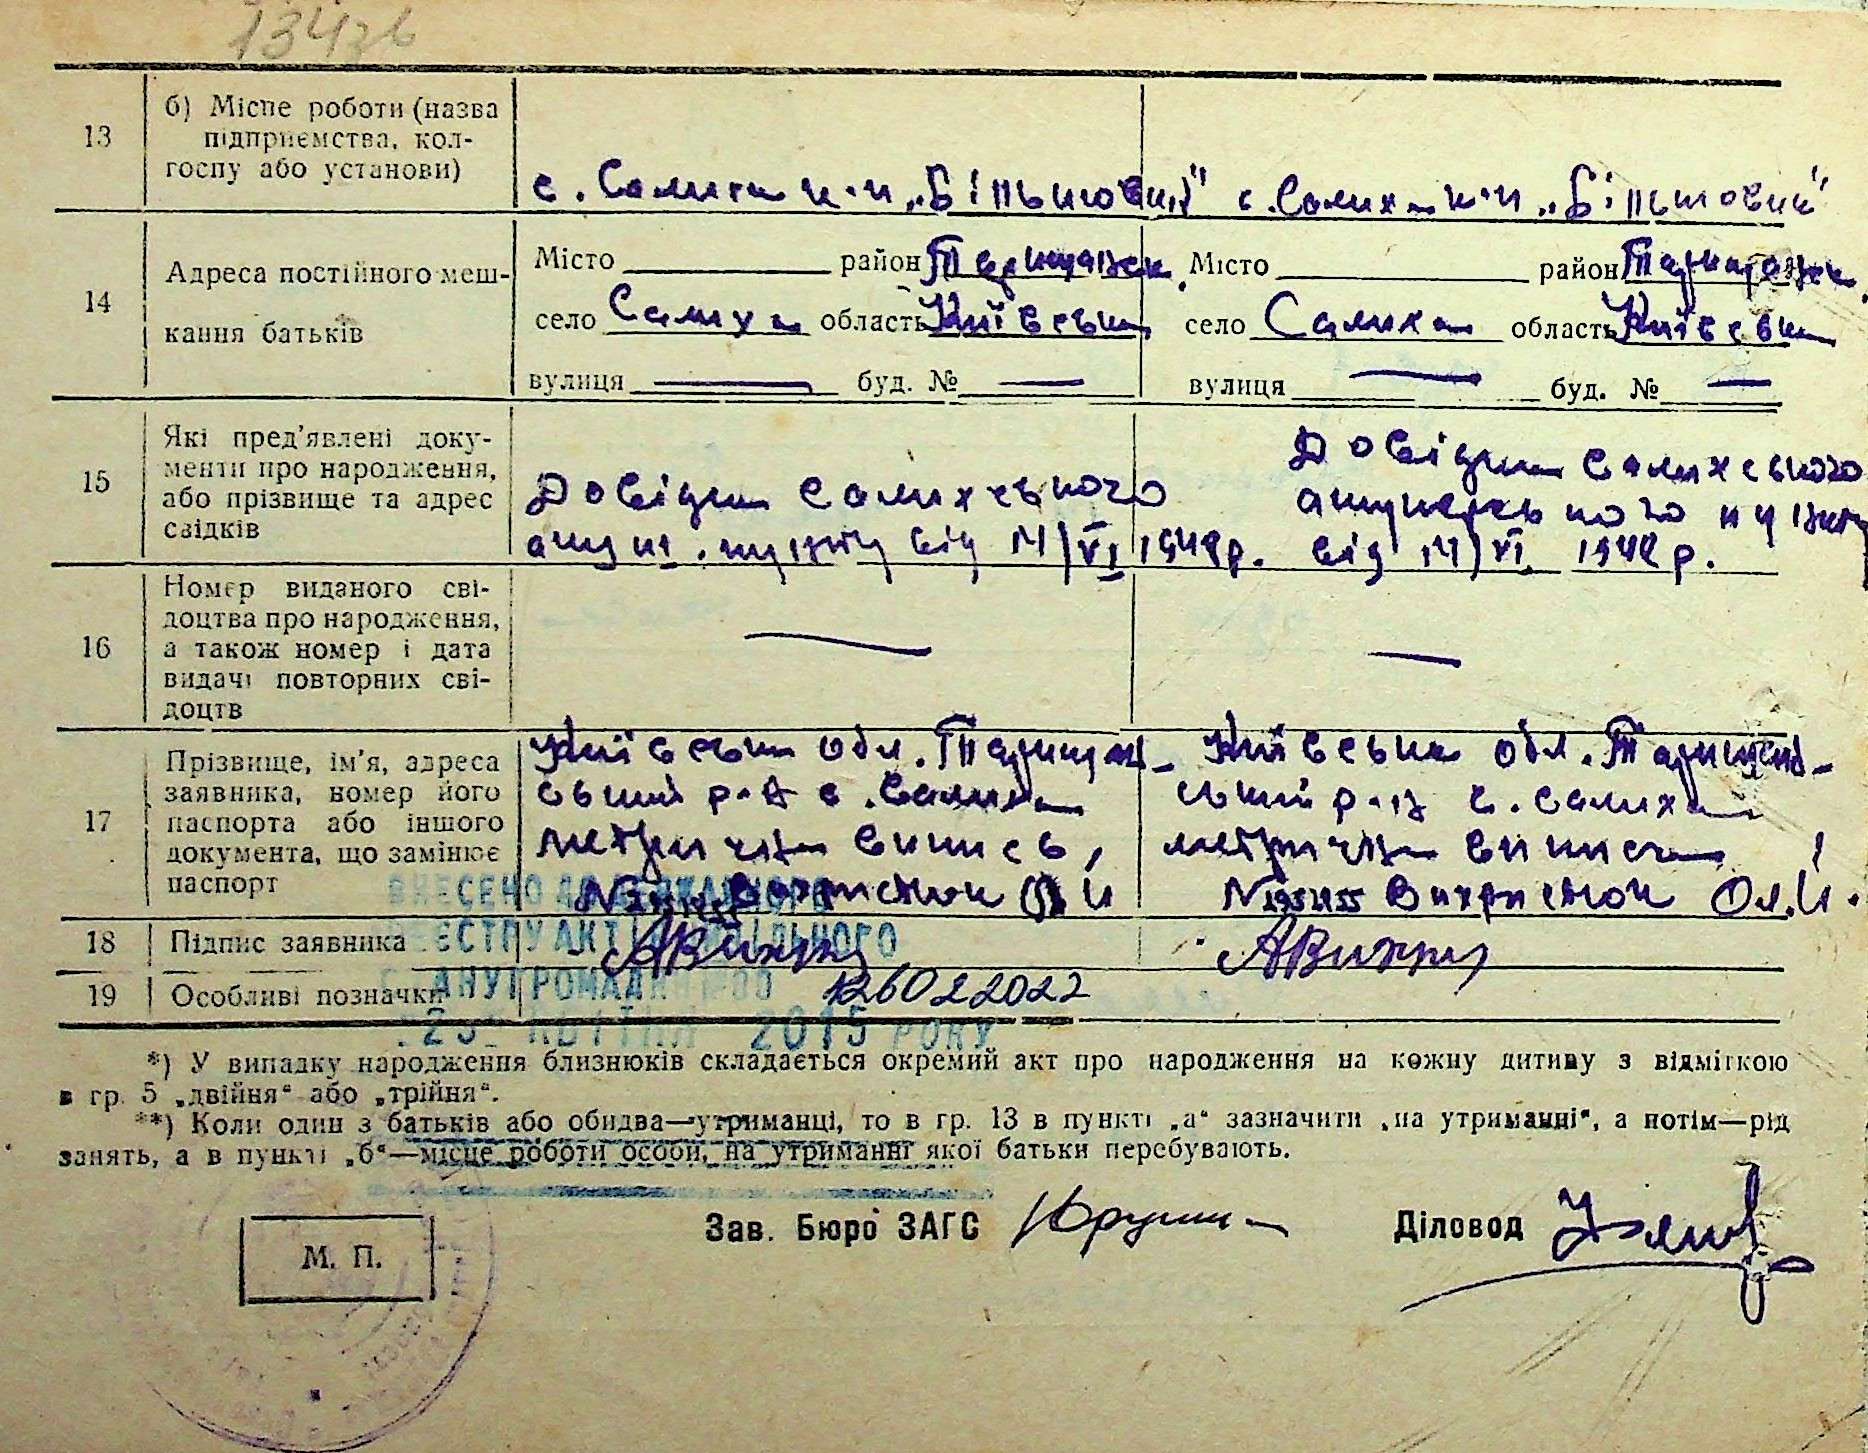 134зв
13
б) Місце роботи (назва
підприємства, кол-
госпу або установи)
с. Салиха к-п „Більшовик" с. Салиха к-п „Більшовик"
14
Адреса постійного меш-
кання батьків
Місто район Таращанськ. Місто район Таращанськ.
село Салиха область Київська село Салиха область Київська
вулиця — буд. № — вулиця — буд. № —
15
Які пред'явлені доку-
менти про народження,
або прізвище та адрес
свідків
Довідка Салихського
акуш. пункту від 14/VI 1948 р.
Довідка Салихського
акушерського пункту
від 14/VI 1948 р.
16
Номер виданого сві-
доцтва про народження,
а також номер і дата
видачі повторних сві-
доцтв
— —
17
Прізвище, ім'я, адреса
заявника, номер його
паспорта або іншого
документа, що замінює
паспорт
Київська обл. Таращан-
ський р-н с. Салиха
метрична випись,
Вихристюк
Київська обл. Таращан-
ський р-н с. Салиха
метрична виписка
Вихристюк Ол. И.
18
Підпис заявника
АВихри АВихри
19
Особливі позначки
12602 2022
ВНЕСЕНО ДО ДЕРЖАВНОГО
РЕЄСТРУ АКТІВ ЦИВІЛЬНОГО
СТАНУ ГРОМАДЯН
КВІТНЯ 2015 РОКУ
*) У випадку народження близнюків складається окремий акт про народження на кожну дитину з відміткою
в гр. 5 „двійня" або „трійня".
**) Коли один з батьків або обидва—утриманці, то в гр. 13 в пункті „а" зазначити „на утриманні", а потім—рід
занять, а в пункті „б"—місце роботи особи, на утриманні якої батьки перебувають.
М. П.
Зав. Бюро ЗАГС
Діловод